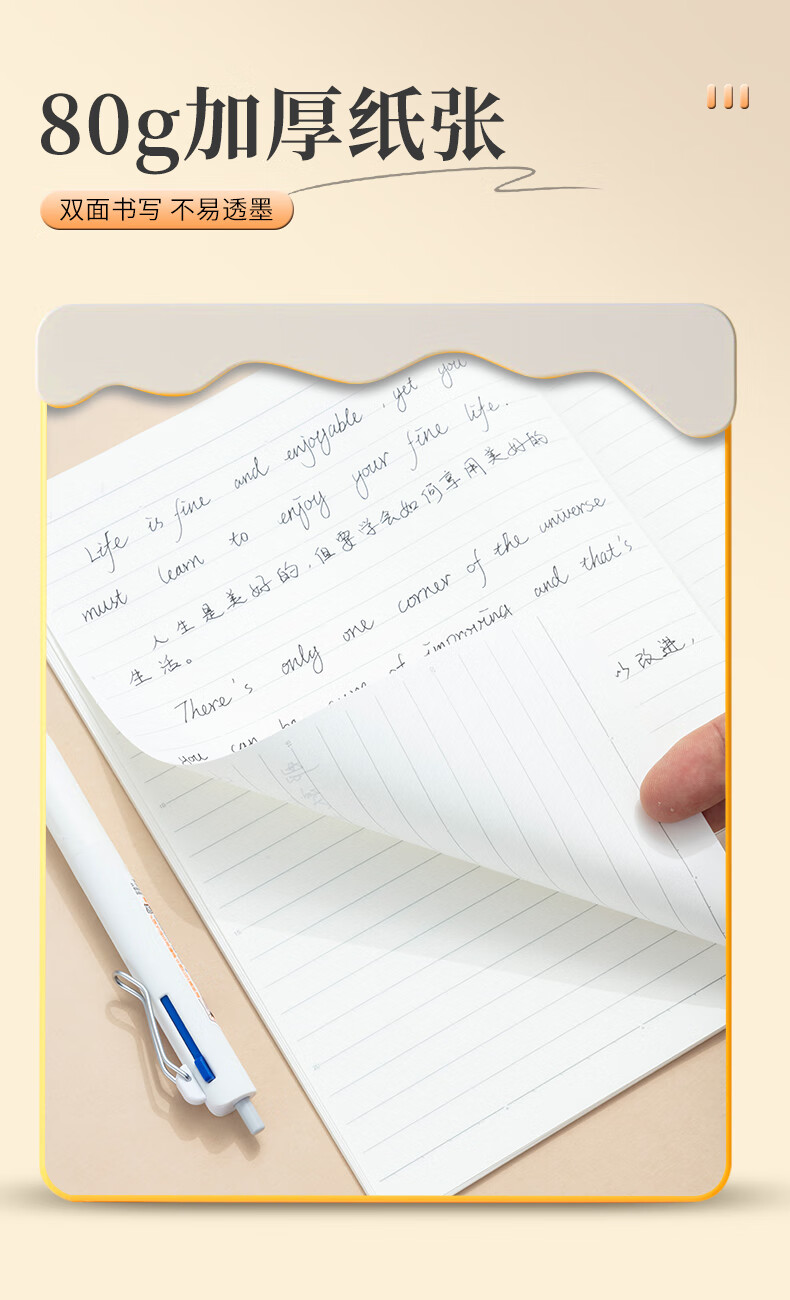 80g加厚纸张
双面书写 不易透墨
Life is fine and enjoyable, yet you
must learn to enjoy your fine life.
人生是美好的,但要学会如何享用美好的
生活。
There's only one corner of the universe
you can be sure of improving and that's
改进,